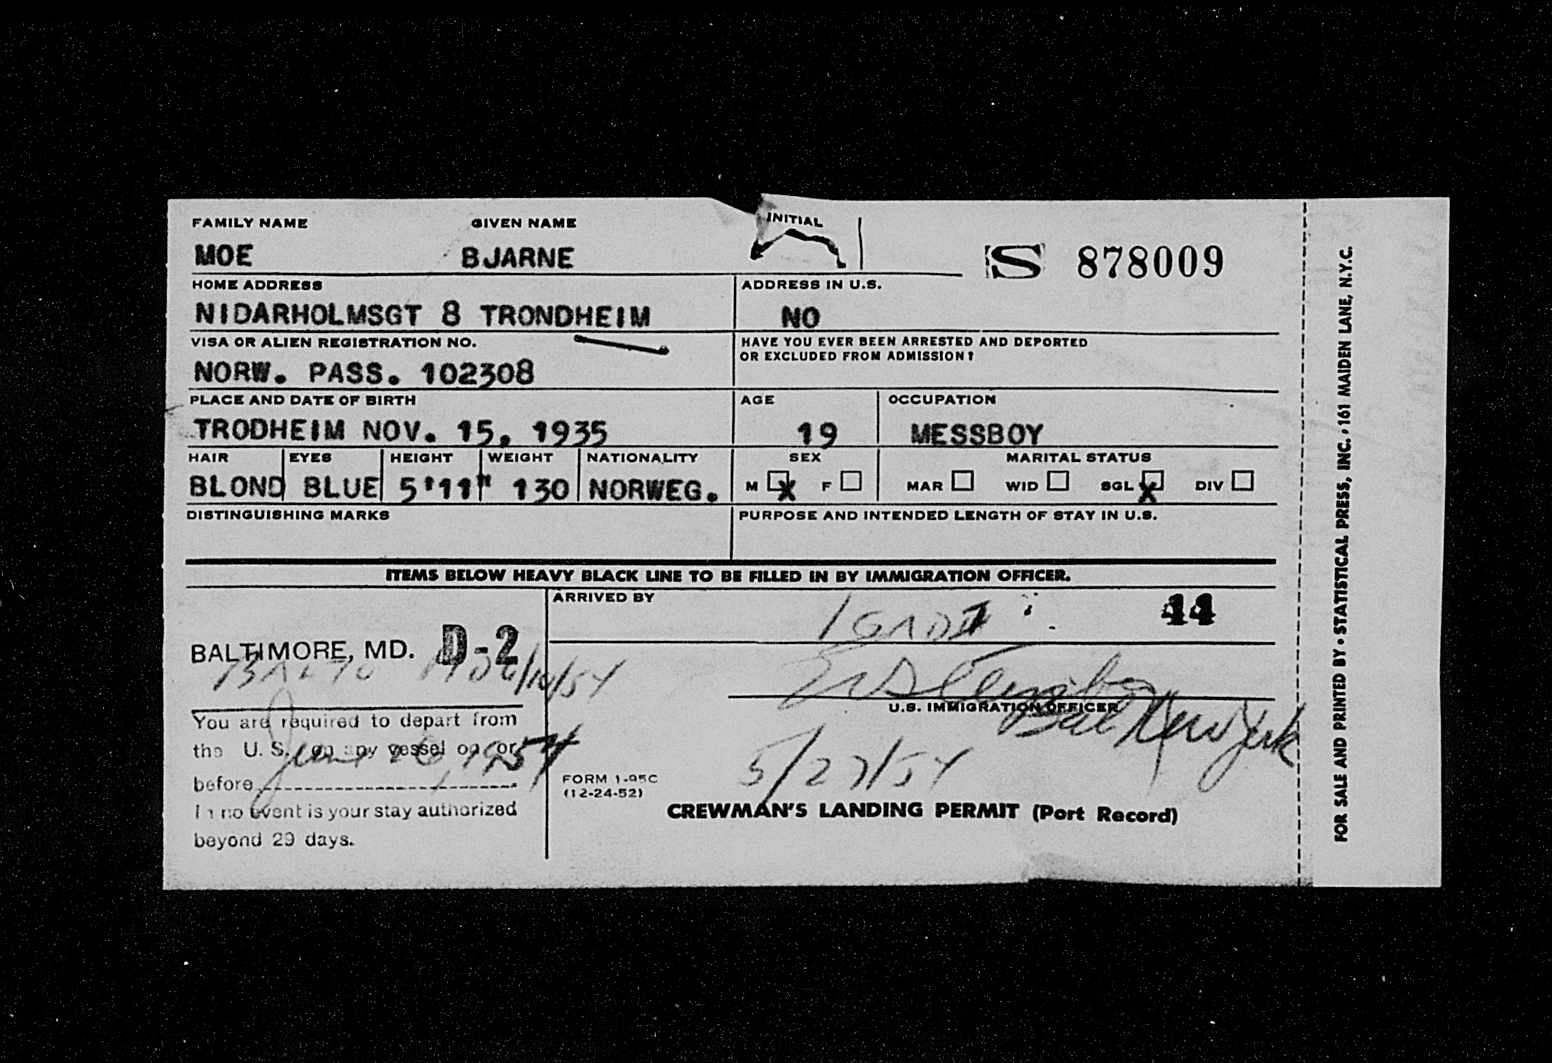 FAMILY NAME GIVEN NAME INITIAL
MOE BJARNE S 878009
HOME ADDRESS ADDRESS IN U.S.
NIDARHOLMSGT 8 TRONDHEIM NO
VISA OR ALIEN REGISTRATION NO. HAVE YOU EVER BEEN ARRESTED AND DEPORTED
OR EXCLUDED FROM ADMISSION?
NORW. PASS. 102308
PLACE AND DATE OF BIRTH AGE OCCUPATION
TRODHEIM NOV. 15, 1935 19 MESSBOY
HAIR EYES HEIGHT WEIGHT NATIONALITY SEX MARITAL STATUS
BLOND BLUE 5'11" 130 NORWEG. M X F MAR WID SGL X DIV
DISTINGUISHING MARKS PURPOSE AND INTENDED LENGTH OF STAY IN U.S.
ITEMS BELOW HEAVY BLACK LINE TO BE FILLED IN BY IMMIGRATION OFFICER.
ARRIVED BY
44
BALTIMORE, MD. D-2
BALTO MD 6/10/54
U.S. IMMIGRATION OFFICER
Bal New York
You are required to depart from
the U. S. on any vessel on or
before June 26, 1954
In no event is your stay authorized
beyond 29 days.
5/27/54
FORM I-95C
(12-24-52)
CREWMAN'S LANDING PERMIT (Port Record)
FOR SALE AND PRINTED BY • STATISTICAL PRESS, INC. • 161 MAIDEN LANE, N.Y.C.